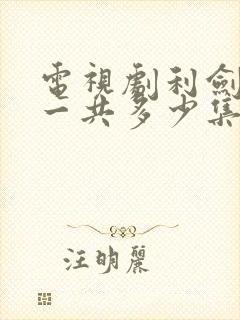 電視劇利劍
一共多少集
汪明麗